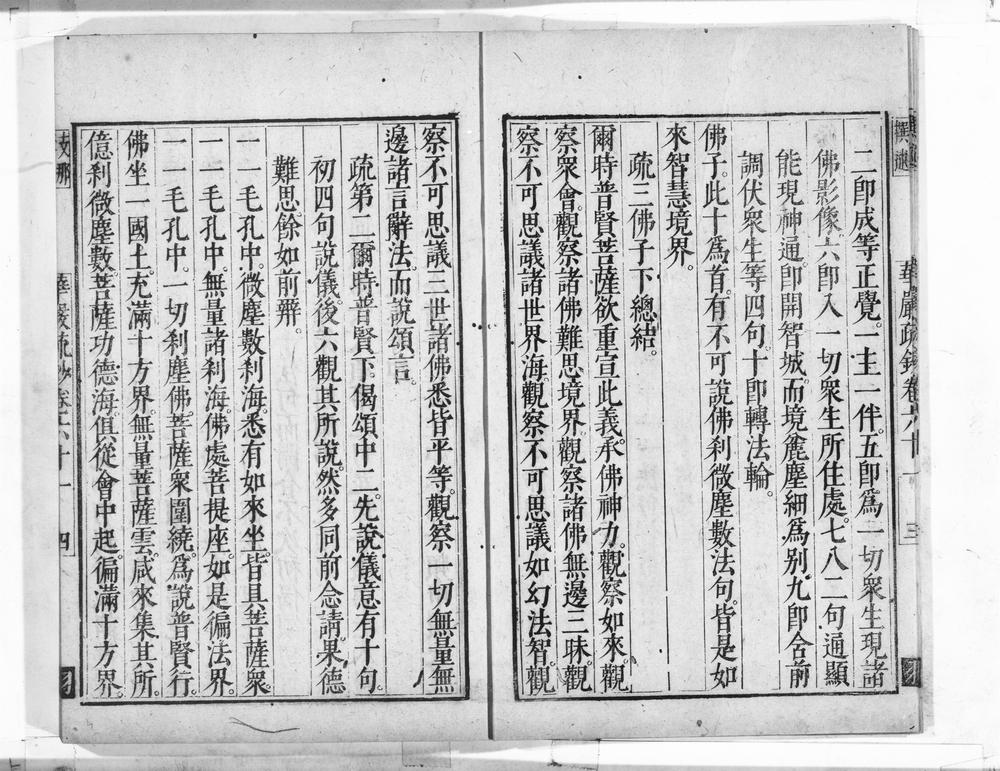 二即成等正覺一主一伴五即爲一切衆生現諸
佛影像六即入一切衆生所住處七八二句通顯
能現神通即開智城而境麁塵細爲别九即舍前
調伏衆生等四句十即轉法輪
佛子此十爲首有不可說佛刹微塵數法句皆是如
來智慧境界
疏三佛子下總結
爾時普賢菩薩欲重宣此義承佛神力觀察如來觀
察衆會觀察諸佛難思境界觀察諸佛無邊三昧觀
察不可思議諸世界海觀察不可思議如幻法智觀
察不可思議三世諸佛悉皆平等觀察一切無量無
邊諸言辭法而說頌言
疏第二爾時普賢下偈頌中二先說儀意有十句
初四句說儀後六觀其所說然多同前念請果德
難思餘如前辨
一一毛孔中微塵數刹海悉有如來坐皆具菩薩衆
一一毛孔中無量諸刹海佛處菩提座如是徧法界
一一毛孔中一切刹塵佛菩薩衆圍繞爲說普賢行
佛坐一國土充滿十方界無量菩薩雲咸來集其所
億刹微塵數菩薩功德海俱從會中起徧滿十方界
華嚴疏鈔卷六十一 三
華嚴疏鈔卷六十一 四